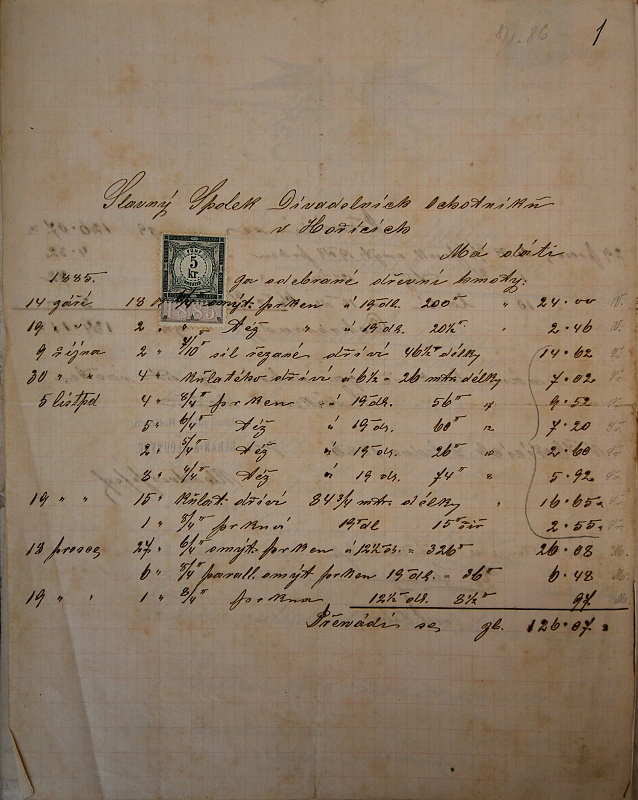 1
Slavný Spolek Divadelních Ochotníků
v Hořicích
Má dáti
5
kr.
1885
1885. za odebrané dřevní hmoty:
14 září 18 omýt. prken á 19 dl. 200" " 24·00
19 " 2 " též " á 19 dl. 20½" " 2·46
9 října 2 " sil řezané dříví 46½" délky 14·62
30 " " 4 " Kulatého dříví á 6½ = 26 mtr. délky 7·02
5 listpd 4 " 8/4" prken á 19 dl. 56" " 9·52
5 " 6/4" též á 19 dl. 60" " 7·20
2 " 5/4" též á 19 dl. 26" " 2·60
8 " 4/4" též á 19 dl. 74" " 5·92
19 " " 15 " Kulat. dříví 84 3/4 mtr. délky " 16·65
1 " 5/4" prkna 19 dl 15" šíř 2·55
13 prosec 27 " 6/4" omýt. prken á 12½ dl. = 326" 26·08
6 " 5/4" parall. omýt prken 19 dl. = 36" 6·48
19 " " 1 " 8/4" prkna 12½ dl. 8½" 97
Převádí se zl. 126·07